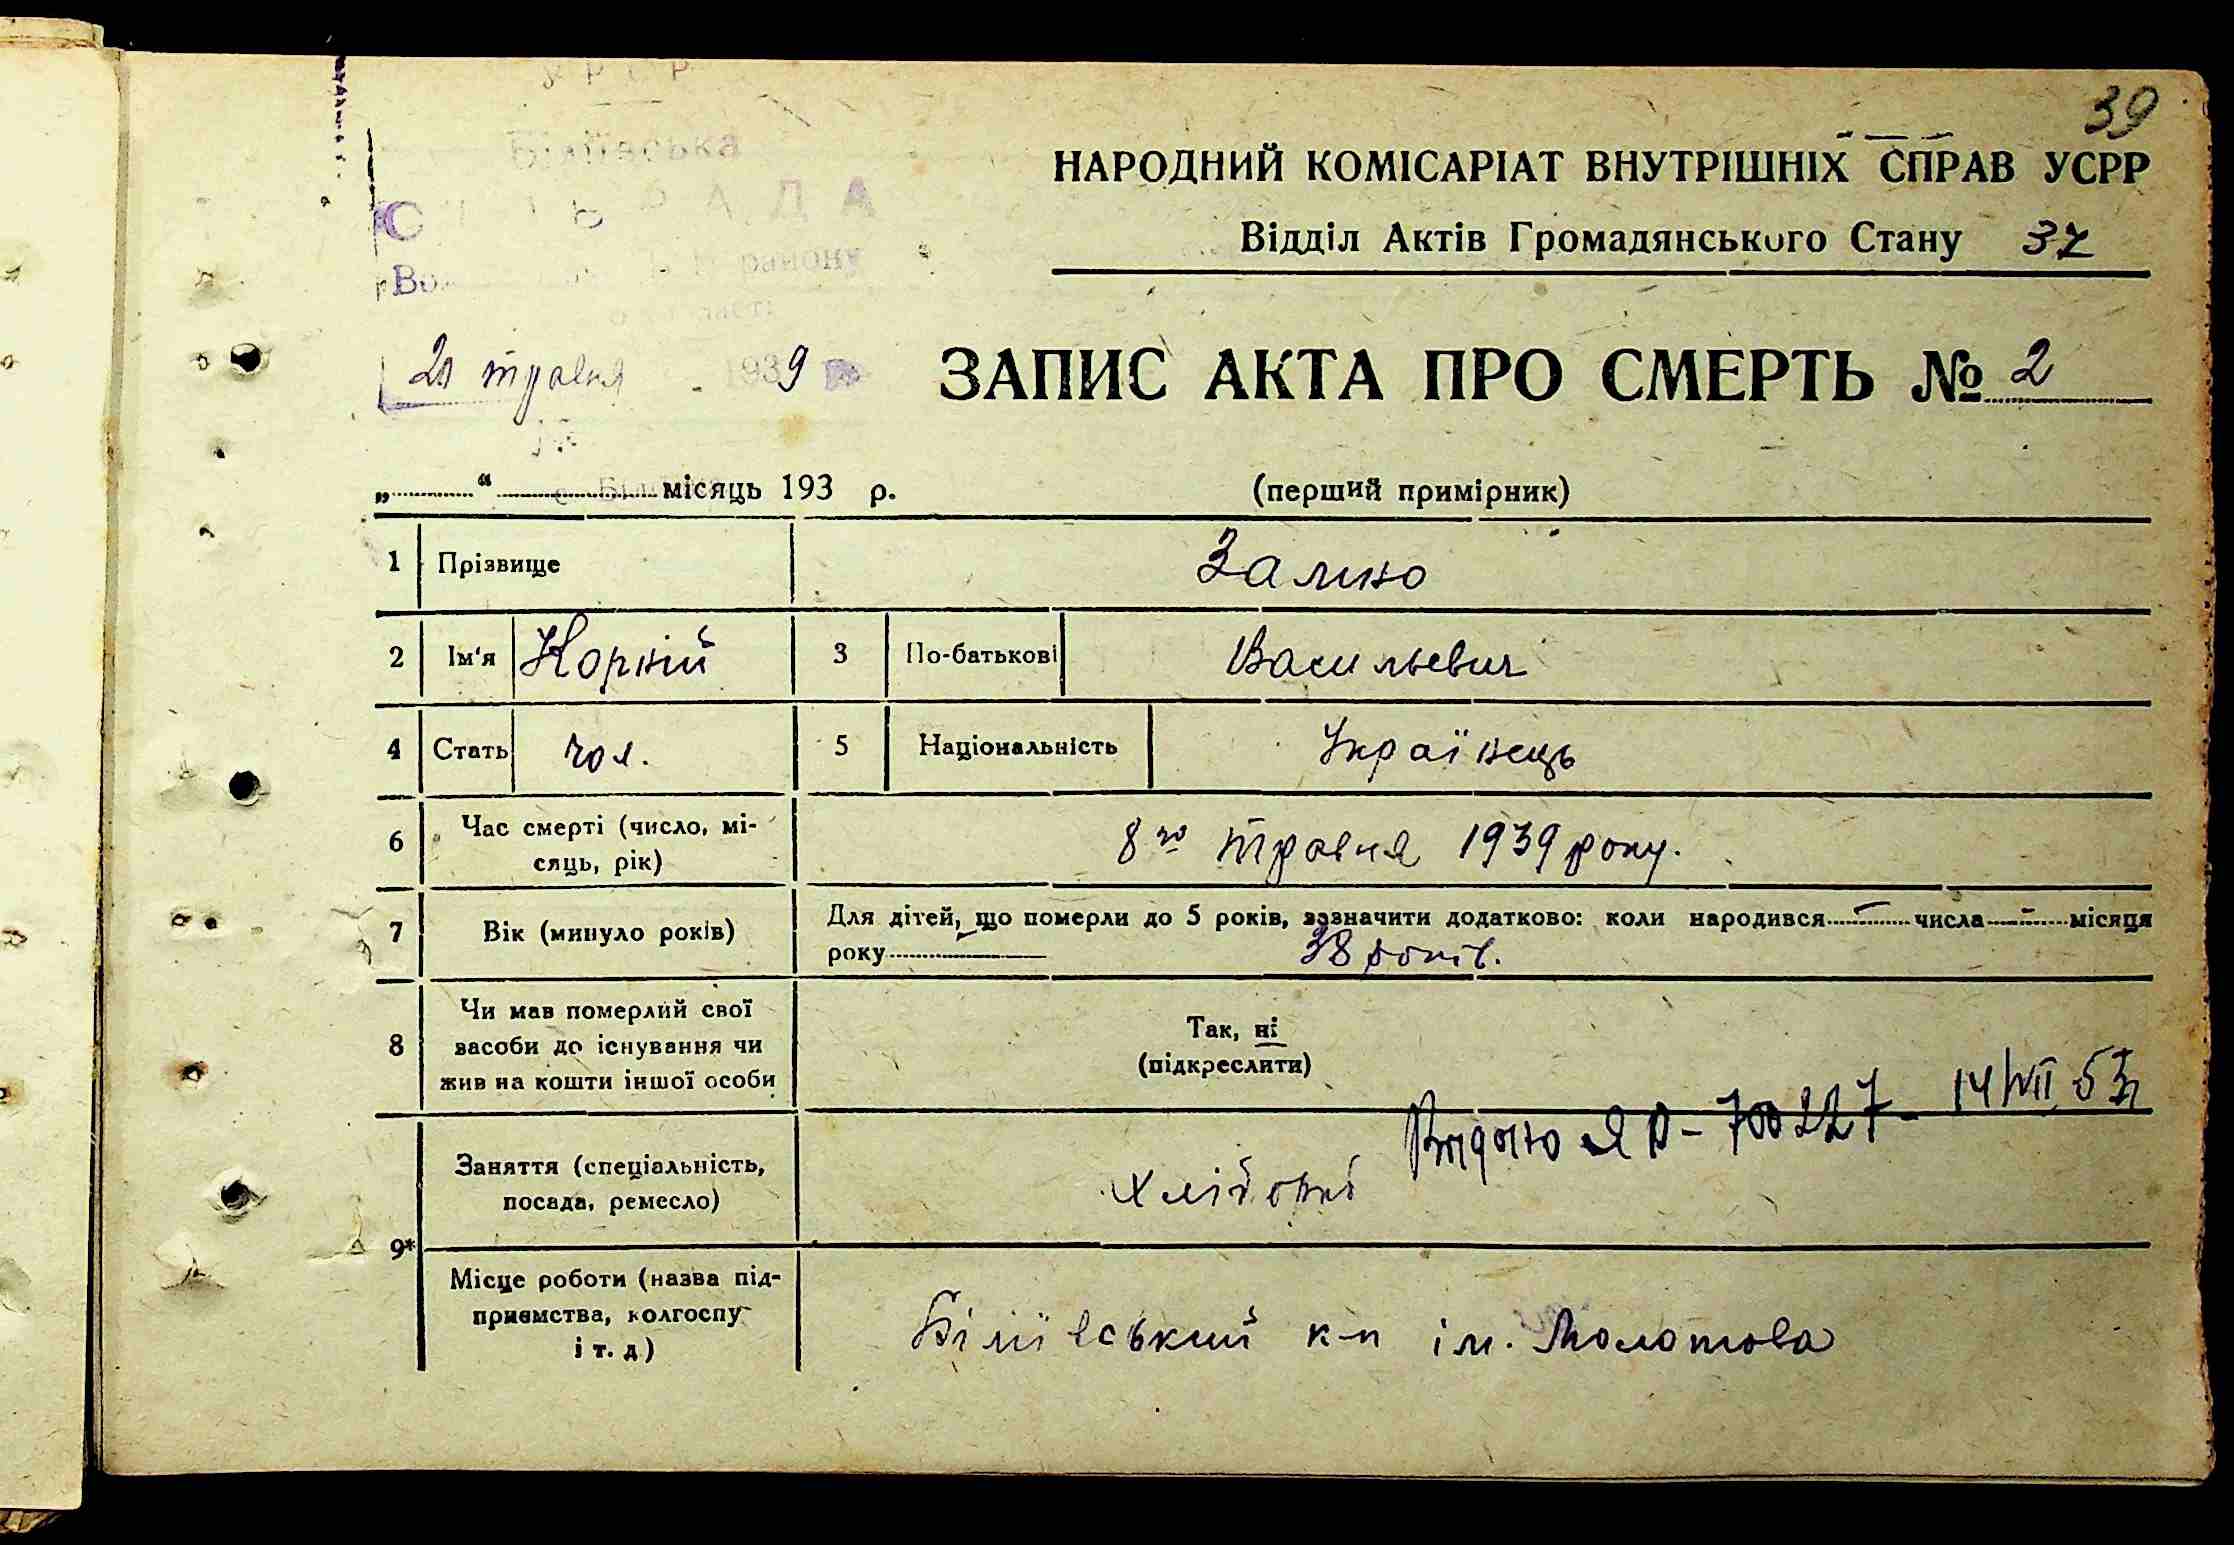 39
У Р С Р
Біліївська
РАДА
району
НАРОДНИЙ КОМІСАРІАТ ВНУТРІШНІХ СПРАВ УСРР
Відділ Актів Громадянського Стану 37
травня 1939
ЗАПИС АКТА ПРО СМЕРТЬ № 2
„ “ місяць 193 р.
(перший примірник)
1 Прізвище Залико
2 Ім'я Корній 3 По-батькові Васильевич
4 Стать чол. 5 Національність Українець
6 Час смерті (число, мі-
сяць, рік) 8го травня 1939 року.
7 Вік (минуло років) Для дітей, що померли до 5 років, зазначити додатково: коли народився - числа - місяця
року 38 років.
8 Чи мав померлий свої
засоби до існування чи
жив на кошти іншої особи
Так, ні
(підкреслити)
Видано ЯР-700227- 14/VII 53г
9* Заняття (спеціальність,
посада, ремесло) Хлібороб
Місце роботи (назва під-
приємства, колгоспу
і т. д) Біліївський к-п ім. Молотова